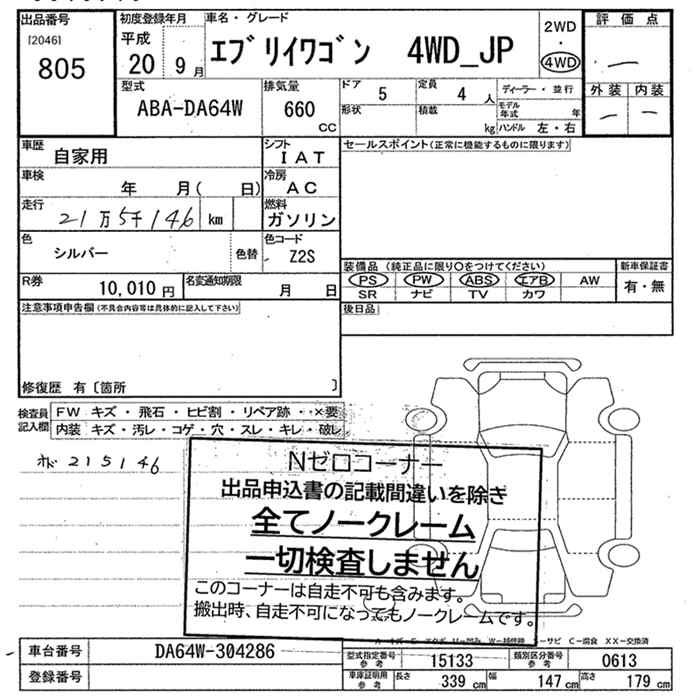 出品番号 初度登録年月 車名・グレード 評価点
[2046] 平成 エブリイワゴン 4WD_JP 2WD
805 20 9月 ・ 4WD —
型式 排気量 ドア 5 定員 4 人 ディーラー・並行 外装 内装
ABA-DA64W 660 CC 形状 積載 kg モデル年式 年 — —
ハンドル 左・右
車歴 自家用 シフト IAT セールスポイント(正常に機能するものに限ります)
車検 年 月( 日) 冷房 AC
走行 21万5千146 km 燃料 ガソリン
色 シルバー 色替 色コード Z2S
装備品 (純正品に限り○をつけてください) 新車保証書
R券 10,010円 名変通知期限 月 日 PS PW ABS エアB AW 有・無
SR ナビ TV カワ
注意事項申告欄(不具合内容等は具体的に記入して下さい) 後日品
修復歴 有〔箇所 〕
検査員記入欄 FW キズ・飛石・ヒビ割・リペア跡・×要
内装 キズ・汚レ・コゲ・穴・スレ・キレ・破レ
215146
Nゼロコーナー
出品申込書の記載間違いを除き
全てノークレーム
一切検査しません
このコーナーは自走不可も含みます。
搬出時、自走不可になってもノークレームです。
車台番号 DA64W-304286
型式指定番号 参考 15133 類別区分番号 参考 0613
登録番号 車庫証明用 参考 長さ 339 cm 幅 147 cm 高さ 179 cm